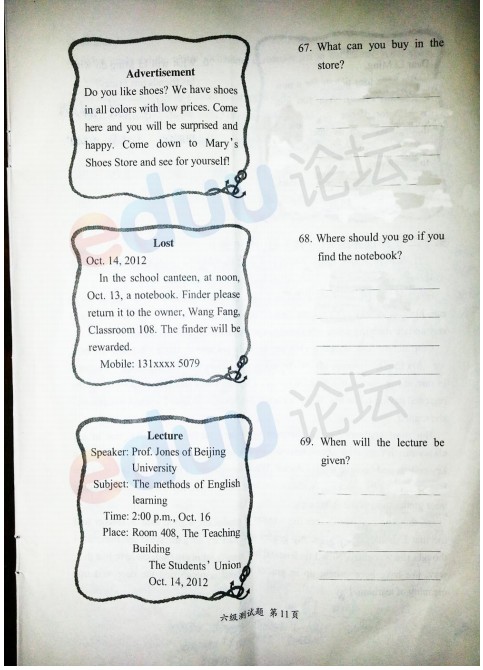 Advertisement
Do you like shoes? We have shoes
in all colors with low prices. Come
here and you will be surprised and
happy. Come down to Mary's
Shoes Store and see for yourself!
67. What can you buy in the
store?
Lost
Oct. 14, 2012
In the school canteen, at noon,
Oct. 13, a notebook. Finder please
return it to the owner, Wang Fang,
Classroom 108. The finder will be
rewarded.
Mobile: 131xxxx 5079
68. Where should you go if you
find the notebook?
Lecture
Speaker: Prof. Jones of Beijing
University
Subject: The methods of English
learning
Time: 2:00 p.m., Oct. 16
Place: Room 408, The Teaching
Building
The Students' Union
Oct. 14, 2012
69. When will the lecture be
given?
六级测试题 第11页
eduu 论坛
eduu 论坛